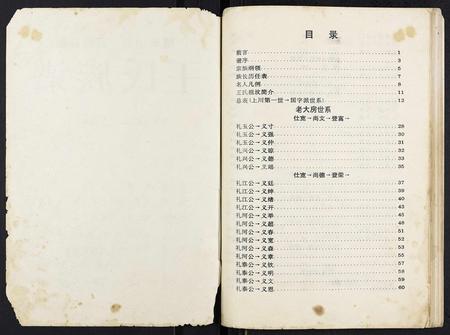 目录
前言 1
谱序 3
宗族纲领 5
族长历任表 7
名人凡例 8
王氏祖坟简介 11
总表(上川第一世→国字派世系) 13
老大房世系
仕宽→尚文→登富→
礼玉公→义寸 28
礼玉公→义强 30
礼玉公→义仲 31
礼兴公→义琼 32
礼兴公→义德 33
礼兴公→王瑶 35
仕宽→尚德→登荣→
礼江公→义廷 37
礼江公→义绅 39
礼江公→义绪 40
礼江公→义开 43
礼河公→义举 45
礼河公→义超 48
礼河公→义春 51
礼河公→义宽 52
礼河公→义森 53
礼河公→义章 55
礼泰公→义钦 57
礼泰公→义明 58
礼泰公→义文 59
礼泰公→义恩 60